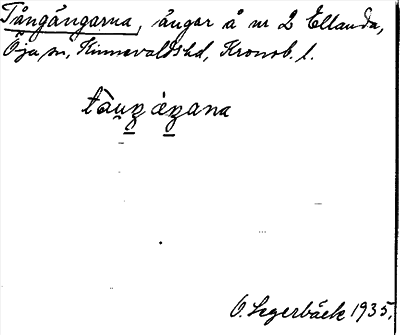 Tångängarna, ängar å nr 2 Ellanda,
Öja sn, Kinnevaldshd, Kronob. l.
O. Segerbäck 1935.